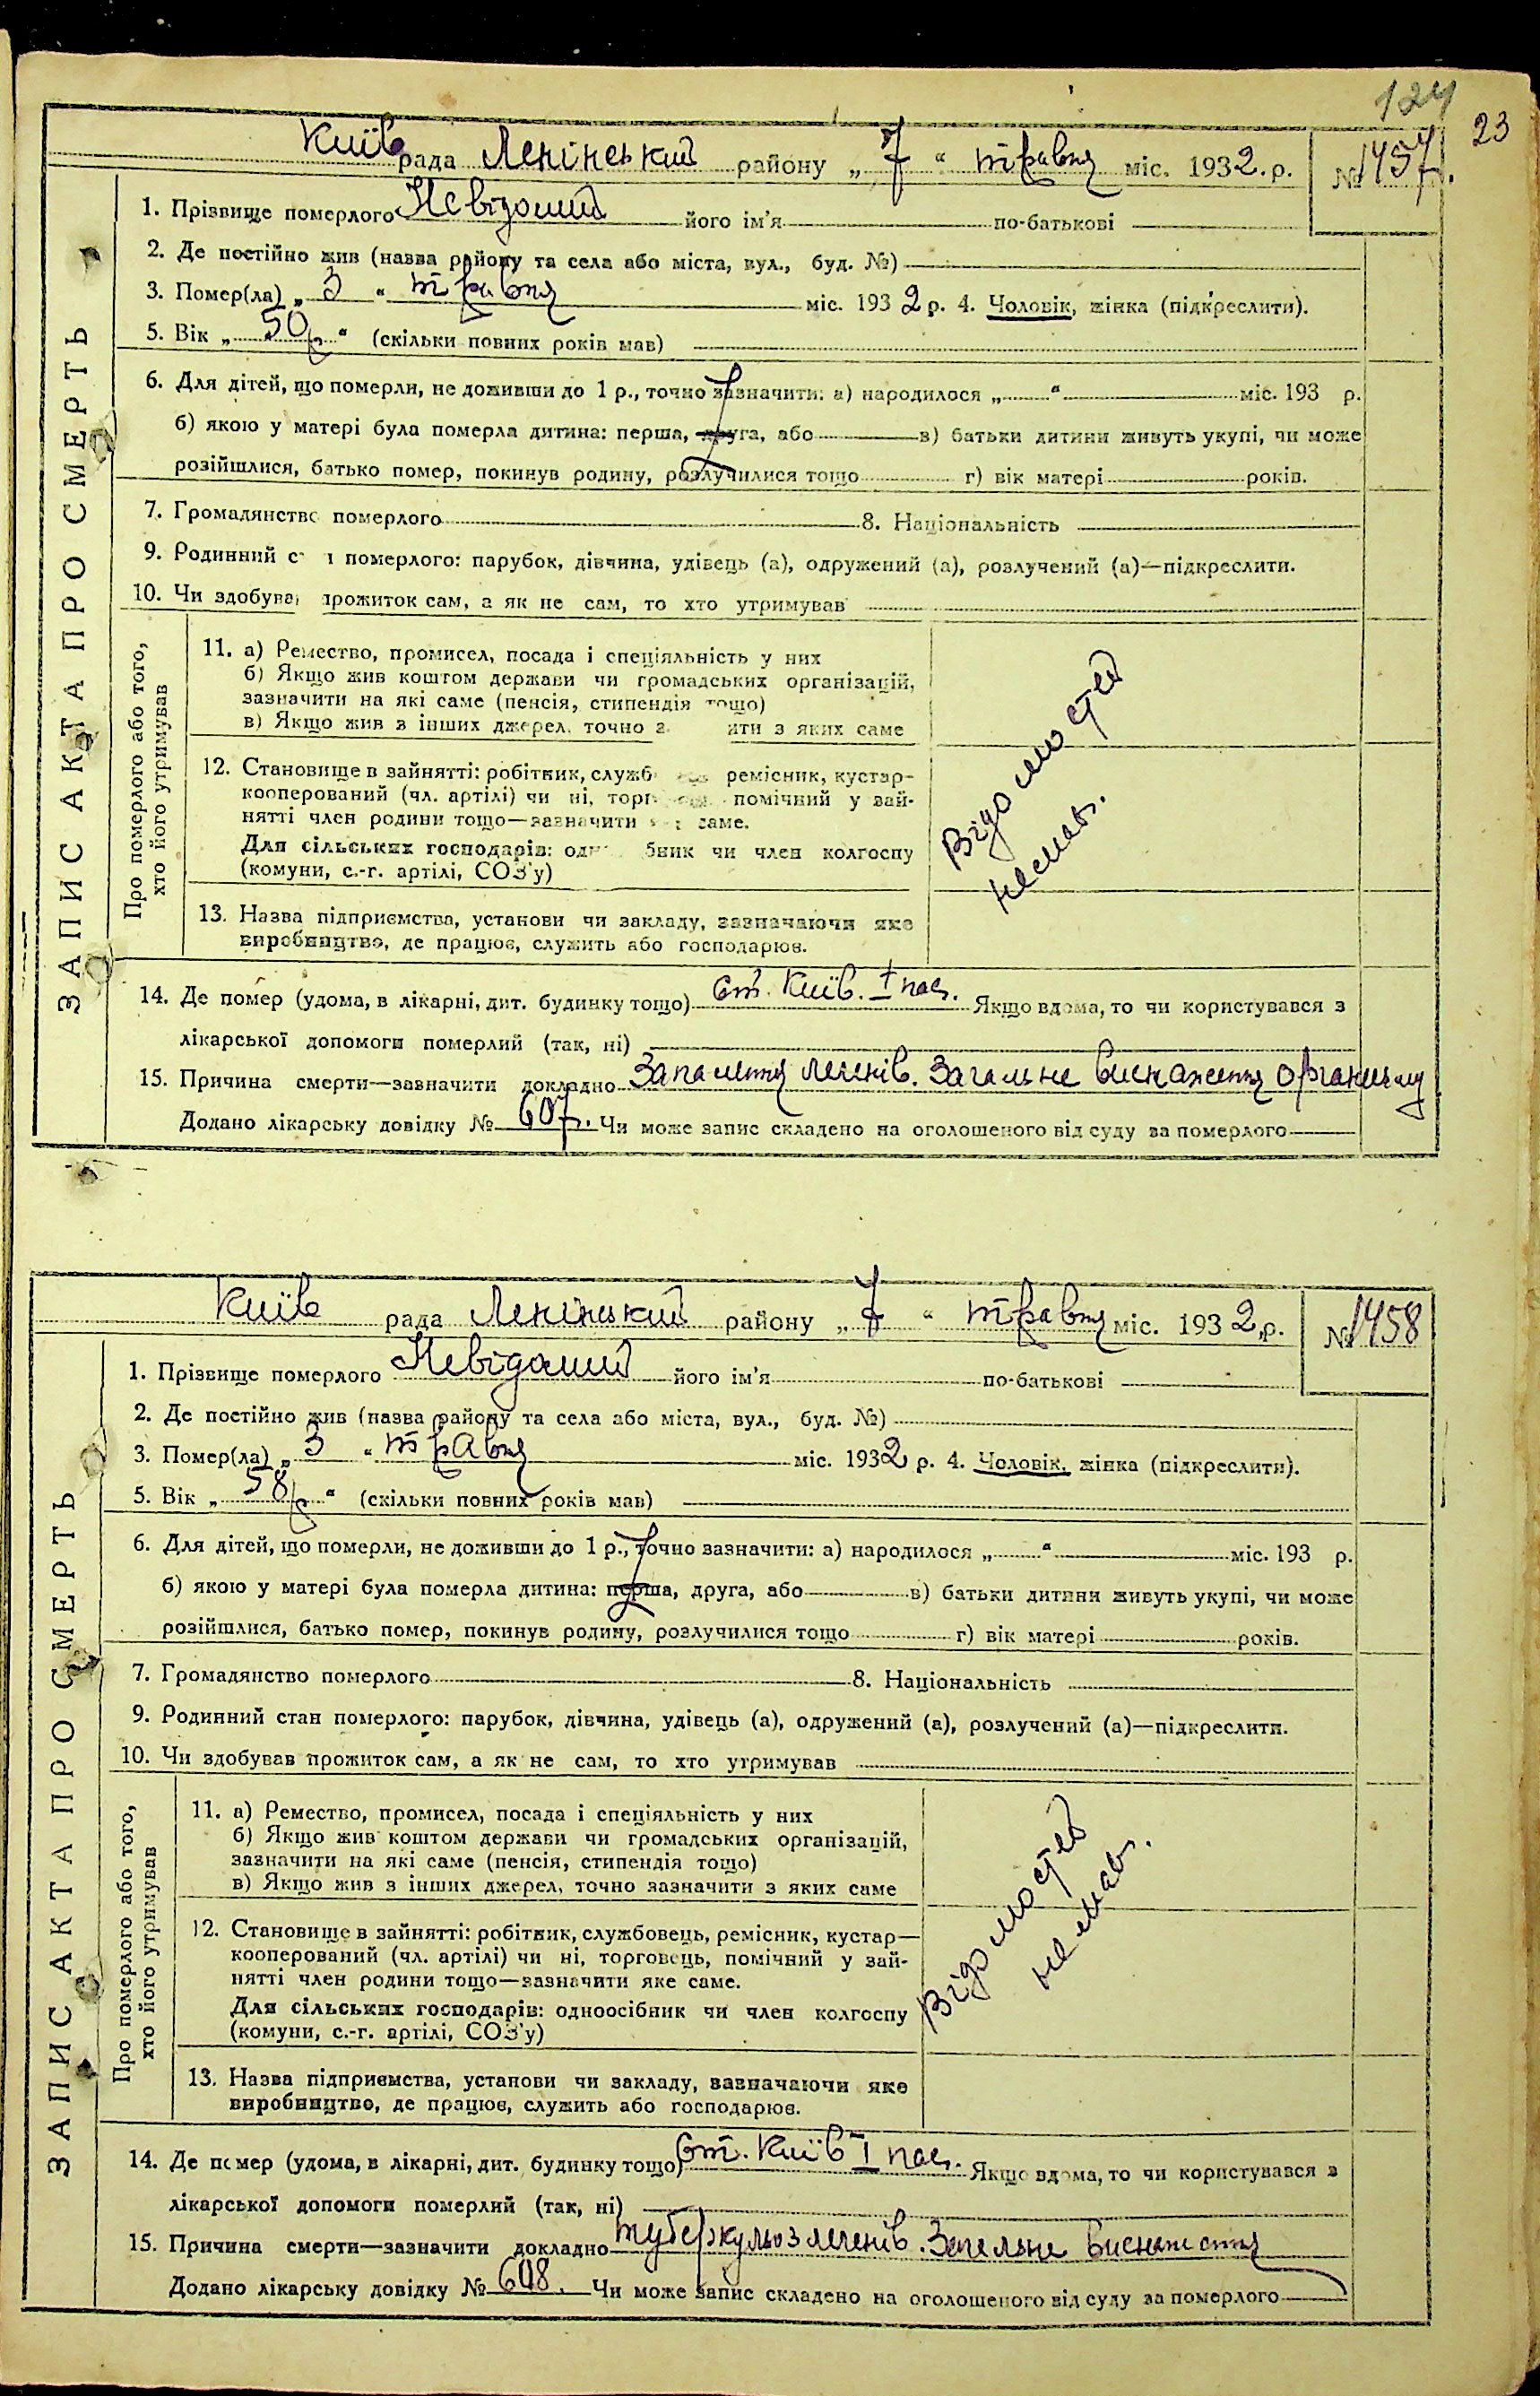 124
23
Київ рада Ленінський району „ 7 “ травня міс. 1932. р. № 1457.
1. Прізвище померлого Невідомий його ім'я по-батькові
2. Де постійно жив (назва району та села або міста, вул., буд. №)
3. Помер(ла) „ 3 “ травня міс. 1932 р. 4. Чоловік, жінка (підкреслити).
5. Вік „ 50 р “ (скільки повних років мав)
6. Для дітей, що померли, не доживши до 1 р., точно зазначити: а) народилося „ “ міс. 193 р.
б) якою у матері була померла дитина: перша, друга, або в) батьки дитини живуть укупі, чи може
розійшлися, батько помер, покинув родину, розлучилися тощо г) вік матері років.
7. Громадянство померлого 8. Національність
9. Родинний с н померлого: парубок, дівчина, удівець (а), одружений (а), розлучений (а)—підкреслити.
10. Чи здобував прожиток сам, а як не сам, то хто утримував
ЗАПИС АКТА ПРО СМЕРТЬ
Про померлого або того,
хто його утримував
11. а) Ремество, промисел, посада і спеціяльність у них
б) Якщо жив коштом держави чи громадських організацій,
зазначити на які саме (пенсія, стипендія тощо)
в) Якщо жив з інших джерел, точно з ити з яких саме
12. Становище в зайнятті: робітник, служб ремісник, кустар-
кооперований (чл. артілі) чи ні, торг помічний у зай-
нятті член родини тощо—зазначити саме.
Для сільських господарів: одн бник чи член колгоспу
(комуни, с.-г. артілі, СОЗ'у)
13. Назва підприємства, установи чи закладу, зазначаючи яке
виробництво, де працює, служить або господарює.
Відомостей
немає.
14. Де помер (удома, в лікарні, дит. будинку тощо) ст. Київ. I пас. Якщо вдома, то чи користувався з
лікарської допомоги померлий (так, ні)
15. Причина смерти—зазначити докладно Запалення легенів. Загальне виснаження організму
Додано лікарську довідку № 607. Чи може запис складено на оголошеного від суду за померлого
Київ рада Ленінський району „ 7 “ травня міс. 1932 р. № 1458
1. Прізвище померлого Невідомий його ім'я по-батькові
2. Де постійно жив (назва району та села або міста, вул., буд. №)
3. Помер(ла) „ 3 “ травня міс. 1932 р. 4. Чоловік, жінка (підкреслити).
5. Вік „ 58 р “ (скільки повних років мав)
6. Для дітей, що померли, не доживши до 1 р., точно зазначити: а) народилося „ “ міс. 193 р.
б) якою у матері була померла дитина: перша, друга, або в) батьки дитини живуть укупі, чи може
розійшлися, батько помер, покинув родину, розлучилися тощо г) вік матері років.
7. Громадянство померлого 8. Національність
9. Родинний стан померлого: парубок, дівчина, удівець (а), одружений (а), розлучений (а)—підкреслити.
10. Чи здобував прожиток сам, а як не сам, то хто утримував
ЗАПИС АКТА ПРО СМЕРТЬ
Про померлого або того,
хто його утримував
11. а) Ремество, промисел, посада і спеціяльність у них
б) Якщо жив коштом держави чи громадських організацій,
зазначити на які саме (пенсія, стипендія тощо)
в) Якщо жив з інших джерел, точно зазначити з яких саме
12. Становище в зайнятті: робітник, службовець, ремісник, кустар—
кооперований (чл. артілі) чи ні, торговець, помічний у зай-
нятті член родини тощо—зазначити яке саме.
Для сільських господарів: одноосібник чи член колгоспу
(комуни, с.-г. артілі, СОЗ'у)
13. Назва підприємства, установи чи закладу, зазначаючи яке
виробництво, де працює, служить або господарює.
Відомостей
немає.
14. Де помер (удома, в лікарні, дит. будинку тощо) ст. Київ I пас. Якщо вдома, то чи користувався з
лікарської допомоги померлий (так, ні)
15. Причина смерти—зазначити докладно туберкульоз легенів. Загальне виснаження
Додано лікарську довідку № 608. Чи може запис складено на оголошеного від суду за померлого